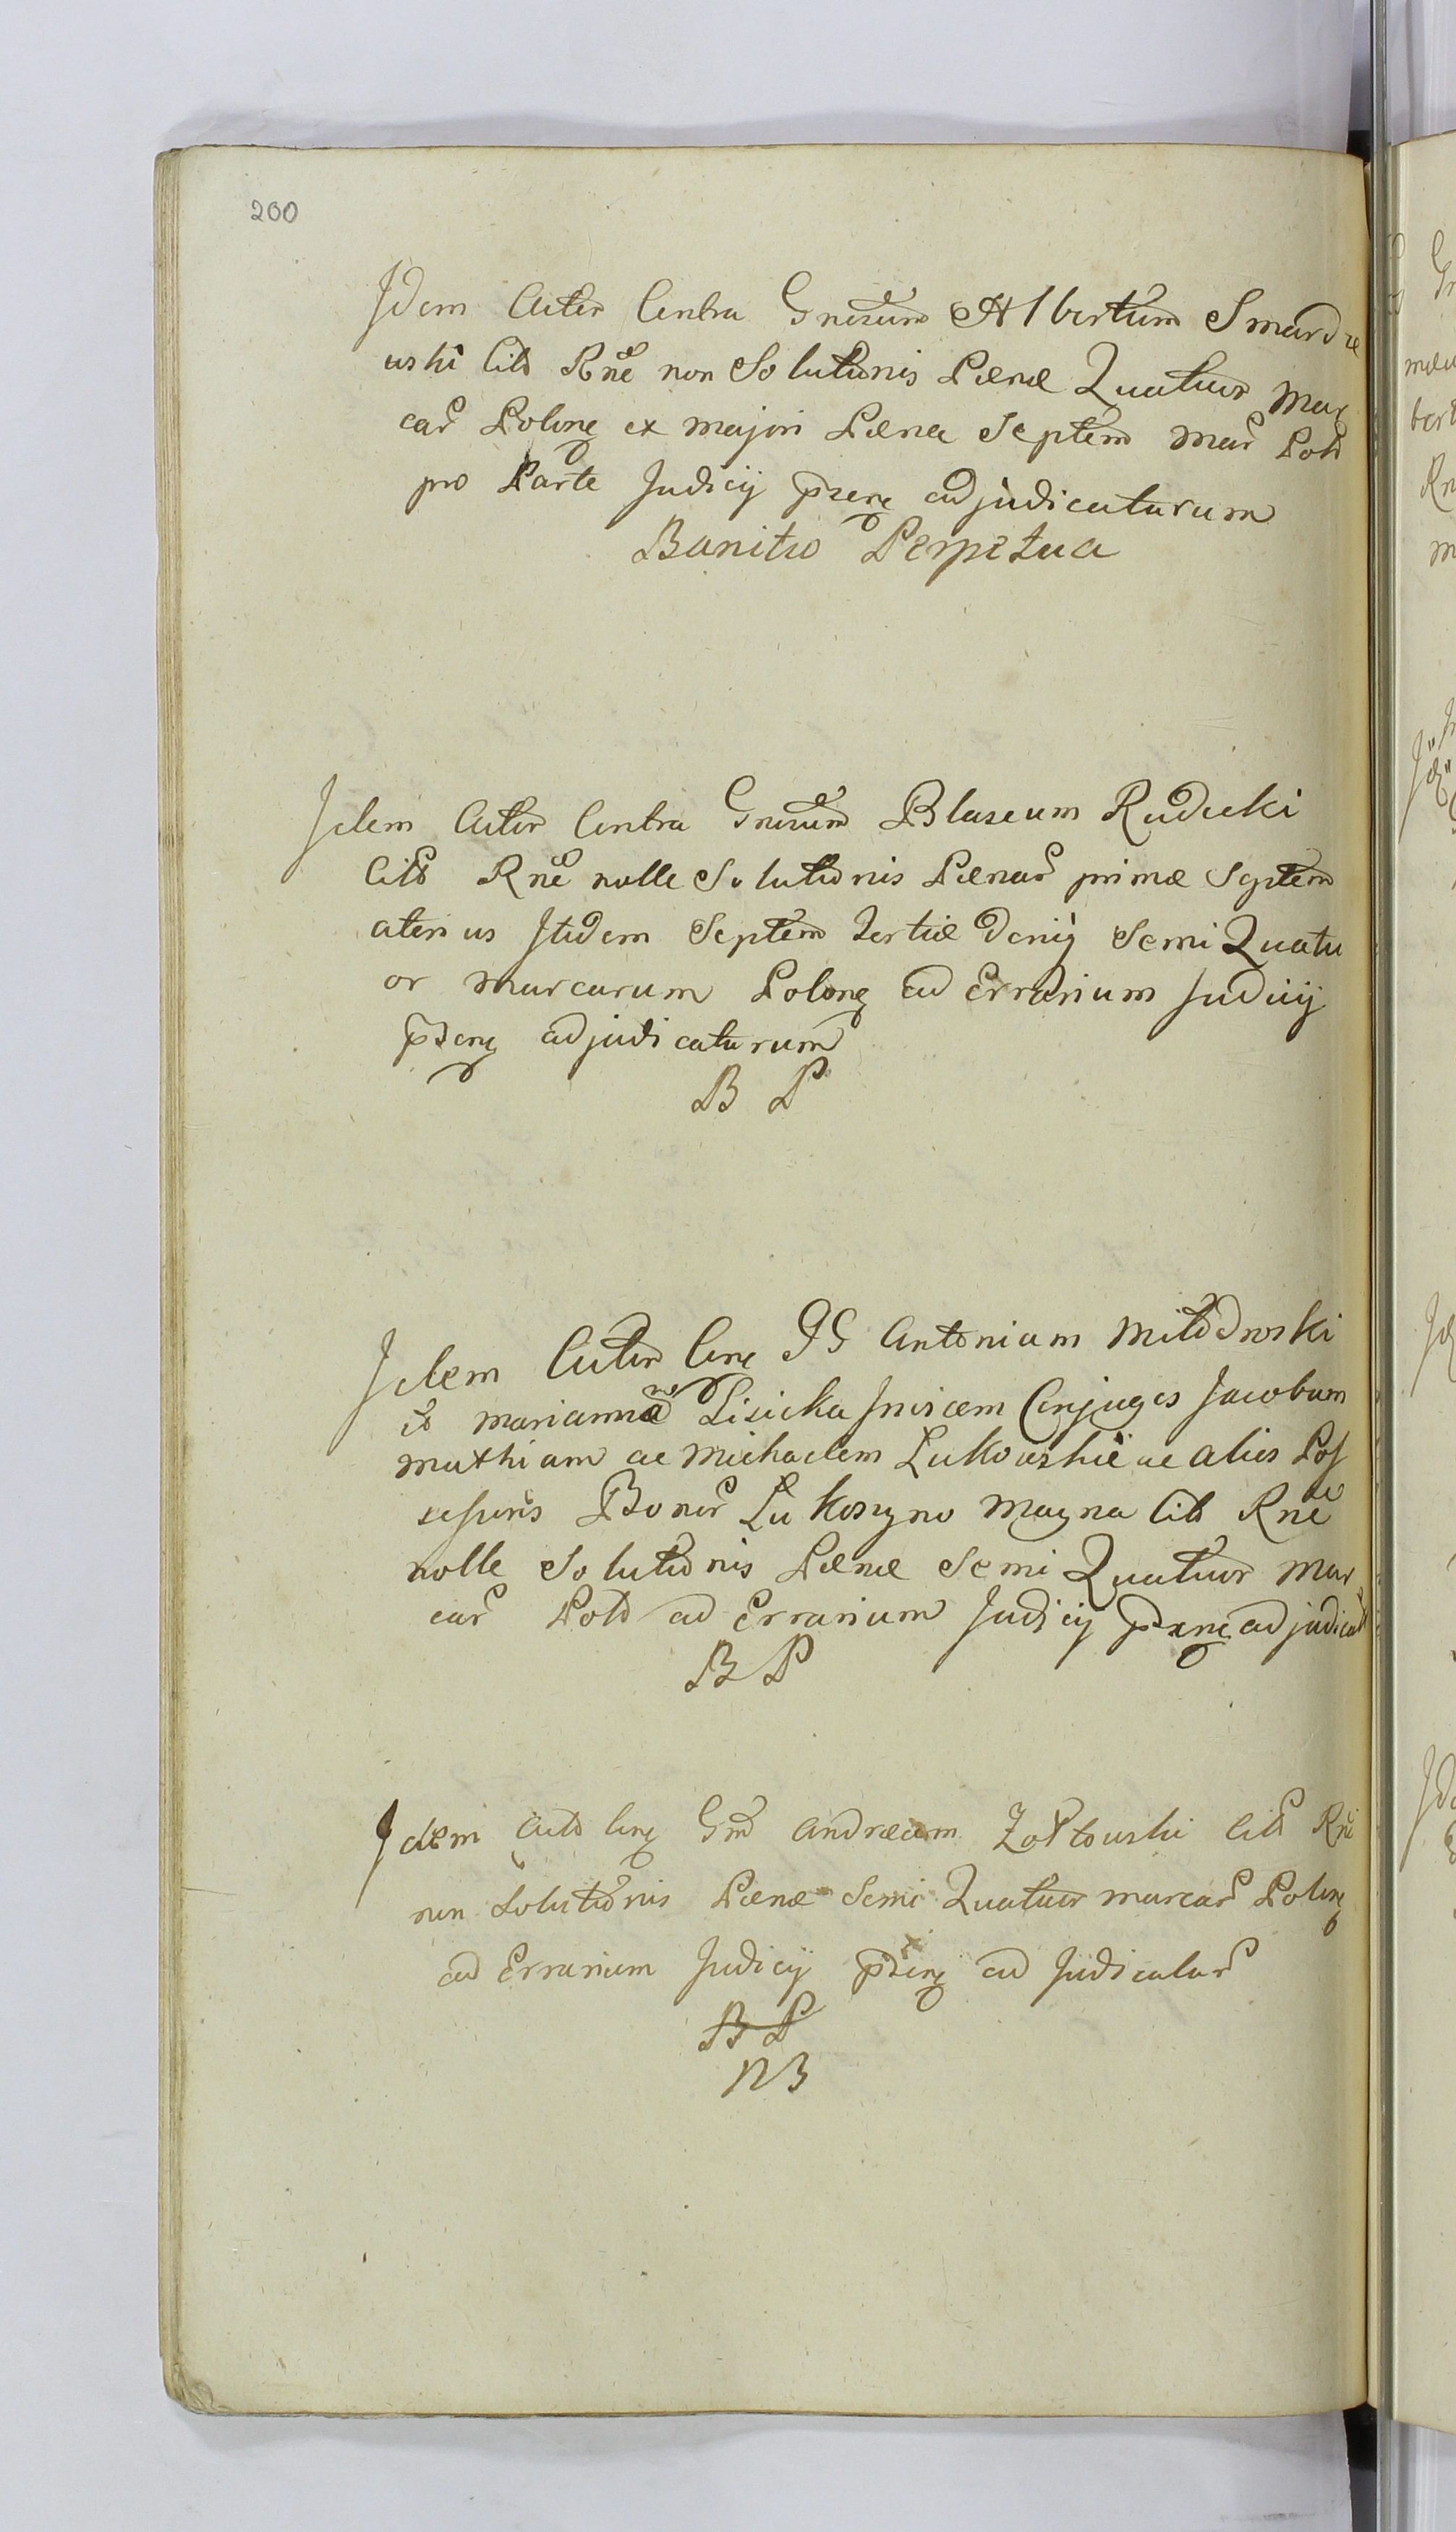 200
Idem Actor Contra Gnrosum Albertum Smardze
wski Citt Rne non Solutionis Pænæ Quatuor Mar
car Polong ex majori Pæna Septem Mar Poll
pro Parte Judicij psens adjudicatarum
Banitio Perpetua
Idem Actor Contra Gnrosum Blaseum Rudecki
Citt Rne nolle Solutionis Pænar primæ Septem
alterius Itidem Septem tertiæ deniq Semi Quatu
or Marcarum Polong ad Errarium Judicij
psens adjudicatarum
B P
Idem Actor Cong GG Antonium Miłodrowski
et Marianna Lisicka Invicem Conjuges Jacobum
Mathiam ac Michaelem Lukowskie ac alios Pos
sessores Bonor Lukowyno Magna Citt Rne
nolle Solutionis Pænæ Semi Quatuor Mar
car Poll ad Errarium Judicij psens adjudicat
B P
Idem Actor Cong Gnm Andream Zołtowski Citt Rne
non Solutionis Pænæ Semi Quatuor Marcar Polong
ad Errarium Judicij psens adjudicatar
B P
NB